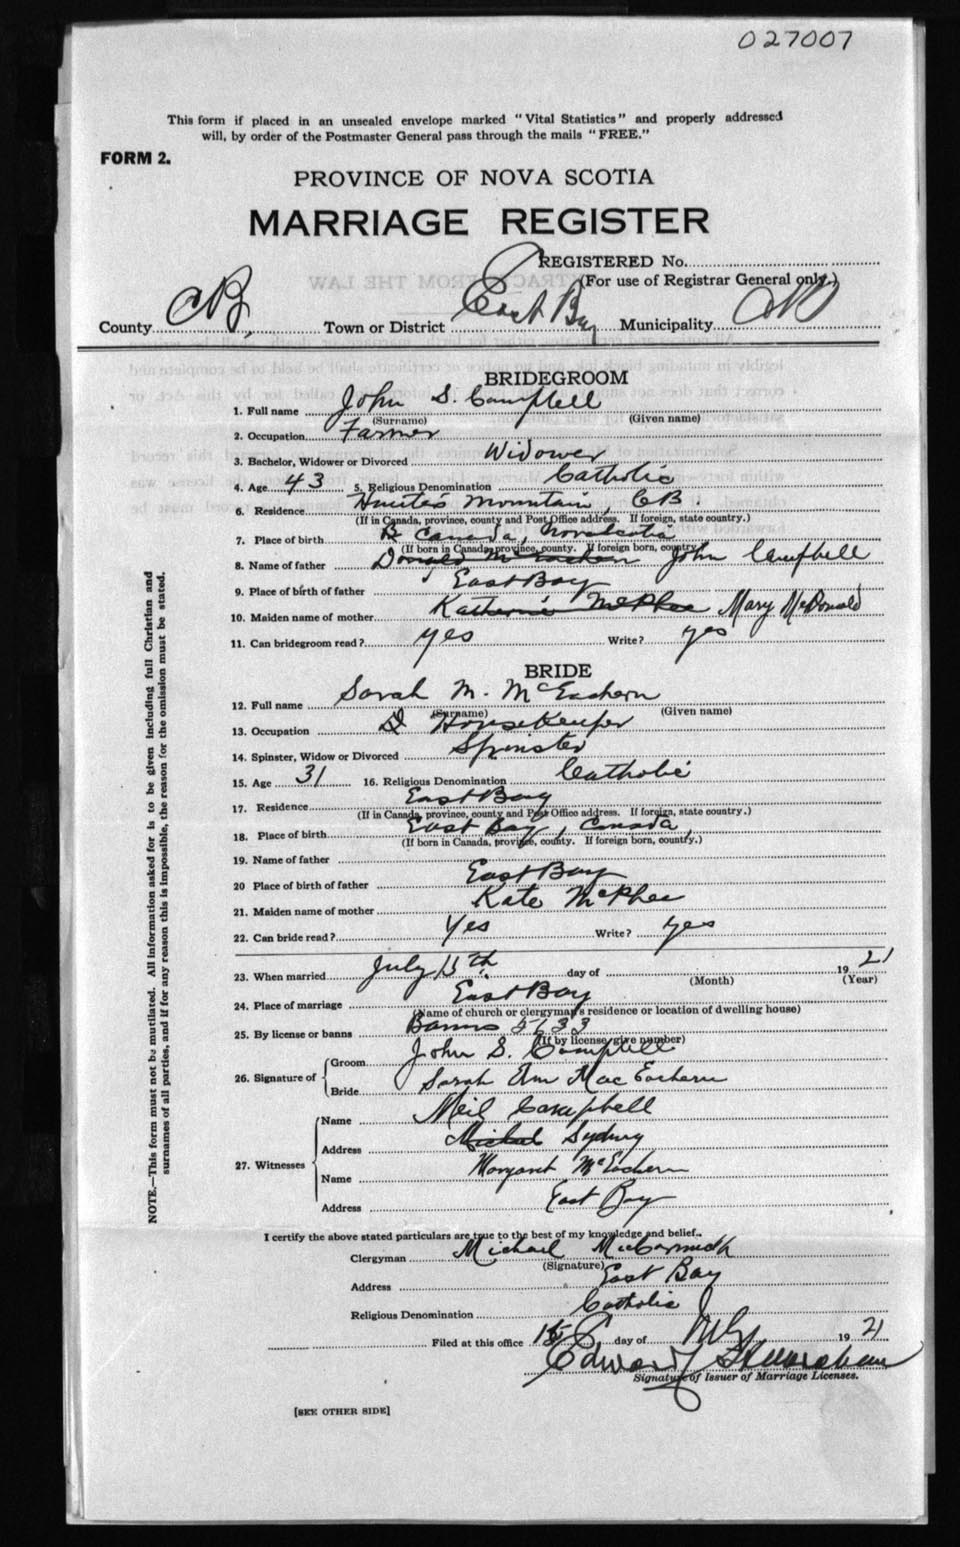 027007
This form if placed in an unsealed envelope marked "Vital Statistics" and properly addressed
will, by order of the Postmaster General pass through the mails "FREE."
FORM 2.
PROVINCE OF NOVA SCOTIA
MARRIAGE REGISTER
REGISTERED No.
(For use of Registrar General only.)
County C.B. Town or District East Bay Municipality CB
BRIDEGROOM
1. Full name John S. Campbell
(Surname) (Given name)
2. Occupation Farmer
3. Bachelor, Widower or Divorced Widower
4. Age 43 5. Religious Denomination Catholic
6. Residence Hunter's Mountain, CB
(If in Canada, province, county and Post Office address. If foreign, state country.)
7. Place of birth Canada, Nova Scotia
(If born in Canada, province, county. If foreign born, country.)
8. Name of father Donald McEachern John Campbell
9. Place of birth of father East Bay
10. Maiden name of mother Katherine McPhee Mary McDonald
11. Can bridegroom read? yes Write? yes
BRIDE
12. Full name Sarah M. McEachern
(Surname) (Given name)
13. Occupation Housekeeper
14. Spinster, Widow or Divorced Spinster
15. Age 31 16. Religious Denomination Catholic
17. Residence East Bay
(If in Canada, province, county and Post Office address. If foreign, state country.)
18. Place of birth East Bay, Canada,
(If born in Canada, province, county. If foreign born, country.)
19. Name of father
20 Place of birth of father East Bay
21. Maiden name of mother Kate McPhee
22. Can bride read? Yes Write? yes
23. When married July 15th day of 1921
(Month) (Year)
24. Place of marriage East Bay
(Name of church or clergyman's residence or location of dwelling house)
25. By license or banns Banns 5733
(If by license, give number)
26. Signature of
Groom John S. Campbell
Bride Sarah Ann MacEachern
27. Witnesses
Name Neil Campbell
Address Sydney
Name Margaret McEachern
Address East Bay
NOTE.—This form must not be mutilated. All information asked for is to be given including full Christian and
surnames of all parties, and if for any reason this is impossible, the reason for the omission must be stated.
I certify the above stated particulars are true to the best of my knowledge and belief.
Clergyman Michael McCormick
(Signature)
Address East Bay
Religious Denomination Catholic
Filed at this office 15 day of July 1921
Edward
Signature of Issuer of Marriage Licenses.
[SEE OTHER SIDE]